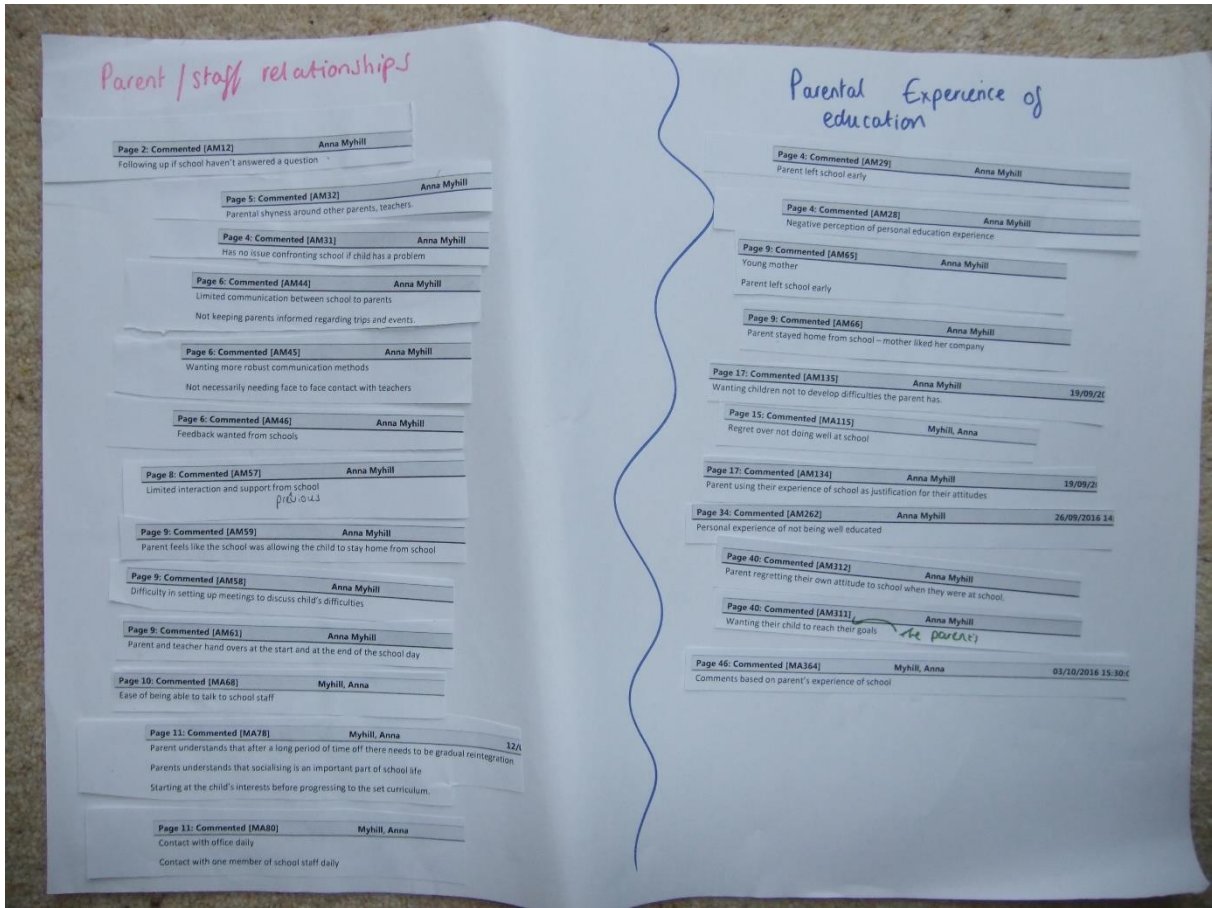 Parent / staff relationships
Page 2: Commented [AM12] Anna Myhill
Following up if school haven't answered a question
Page 5: Commented [AM32] Anna Myhill
Parental shyness around other parents, teachers
Page 4: Commented [AM31] Anna Myhill
Has no issue confronting school if child has a problem
Page 6: Commented [AM44] Anna Myhill
Limited communication between school to parents
Not keeping parents informed regarding trips and events.
Page 6: Commented [AM45] Anna Myhill
Wanting more robust communication methods
Not necessarily needing face to face contact with teachers
Page 6: Commented [AM46] Anna Myhill
Feedback wanted from schools
Page 8: Commented [AM57] Anna Myhill
Limited interaction and support from school
previous
Page 9: Commented [AM59] Anna Myhill
Parent feels like the school was allowing the child to stay home from school
Page 9: Commented [AM58] Anna Myhill
Difficulty in setting up meetings to discuss child's difficulties
Page 9: Commented [AM61] Anna Myhill
Parent and teacher hand overs at the start and at the end of the school day
Page 10: Commented [MA68] Myhill, Anna
Ease of being able to talk to school staff
Page 11: Commented [MA78] Myhill, Anna 12/
Parent understands that after a long period of time off there needs to be gradual reintegration
Parents understands that socialising is an important part of school life
Starting at the child's interests before progressing to the set curriculum.
Page 11: Commented [MA80] Myhill, Anna
Contact with office daily
Contact with one member of school staff daily
Parental Experience of
education
Page 4: Commented [AM29] Anna Myhill
Parent left school early
Page 4: Commented [AM28] Anna Myhill
Negative perception of personal education experience
Page 9: Commented [AM65] Anna Myhill
Young mother
Parent left school early
Page 9: Commented [AM66] Anna Myhill
Parent stayed home from school – mother liked her company
Page 17: Commented [AM135] Anna Myhill 19/09/20
Wanting children not to develop difficulties the parent has.
Page 15: Commented [MA115] Myhill, Anna
Regret over not doing well at school
Page 17: Commented [AM134] Anna Myhill 19/09/2
Parent using their experience of school as justification for their attitudes
Page 34: Commented [AM262] Anna Myhill 26/09/2016 14:
Personal experience of not being well educated
Page 40: Commented [AM312] Anna Myhill
Parent regretting their own attitude to school when they were at school.
Page 40: Commented [AM311] Anna Myhill
Wanting their child to reach their goals
parent's
Page 46: Commented [MA364] Myhill, Anna 03/10/2016 15:30:
Comments based on parent's experience of school